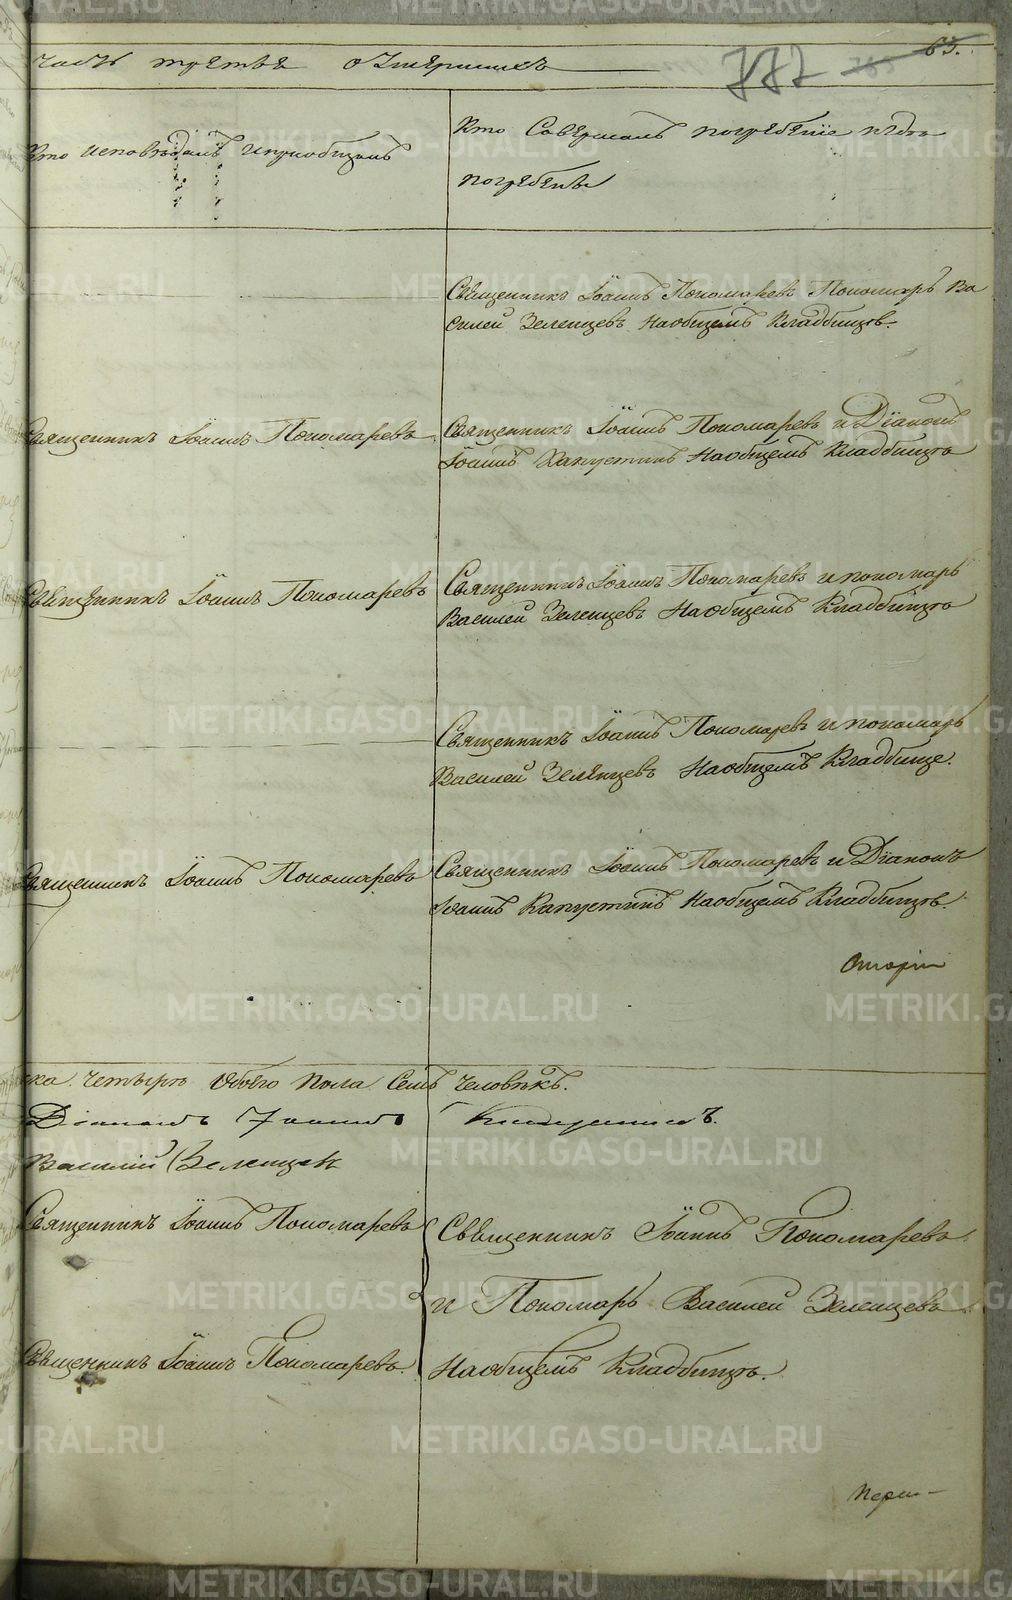 часть третья о умершихъ
777 785 65.
Кто исповѣдалъ и пріобщалъ
Кто Совершалъ погребеніе и гдѣ
погребены
Священникъ Іоаннъ Пономаревъ Пономарь Ва
силей Зеленцевъ На общемъ Кладбищѣ.
Священникъ Іоаннъ Пономаревъ
Священникъ Іоаннъ Пономаревъ и Діаконъ
Іоаннъ Капустинъ На общемъ Кладбищѣ
Священникъ Іоаннъ Пономаревъ
Священникъ Іоаннъ Пономаревъ и пономарь
Василей Зеленцевъ На общемъ Кладбищѣ
Священникъ Іоаннъ Пономаревъ и пономарь
Василей Зеленцевъ На общемъ Кладбище.
Священникъ Іоаннъ Пономаревъ
Священникъ Іоаннъ Пономаревъ и Діаконъ
Іоаннъ Капустинъ На общемъ Кладбищѣ.
ска четыре Обоего пола Семь Человѣкъ.
Діаконъ Іоаннъ Капустинъ.
Василий Зеленцев
Священникъ Іоаннъ Пономаревъ
Священникъ Іоаннъ Пономаревъ
и Пономарь Василей Зеленцевъ
Священникъ Іоаннъ Пономаревъ.
На общемъ Кладбищѣ.
METRIKI.GASO-URAL.RU